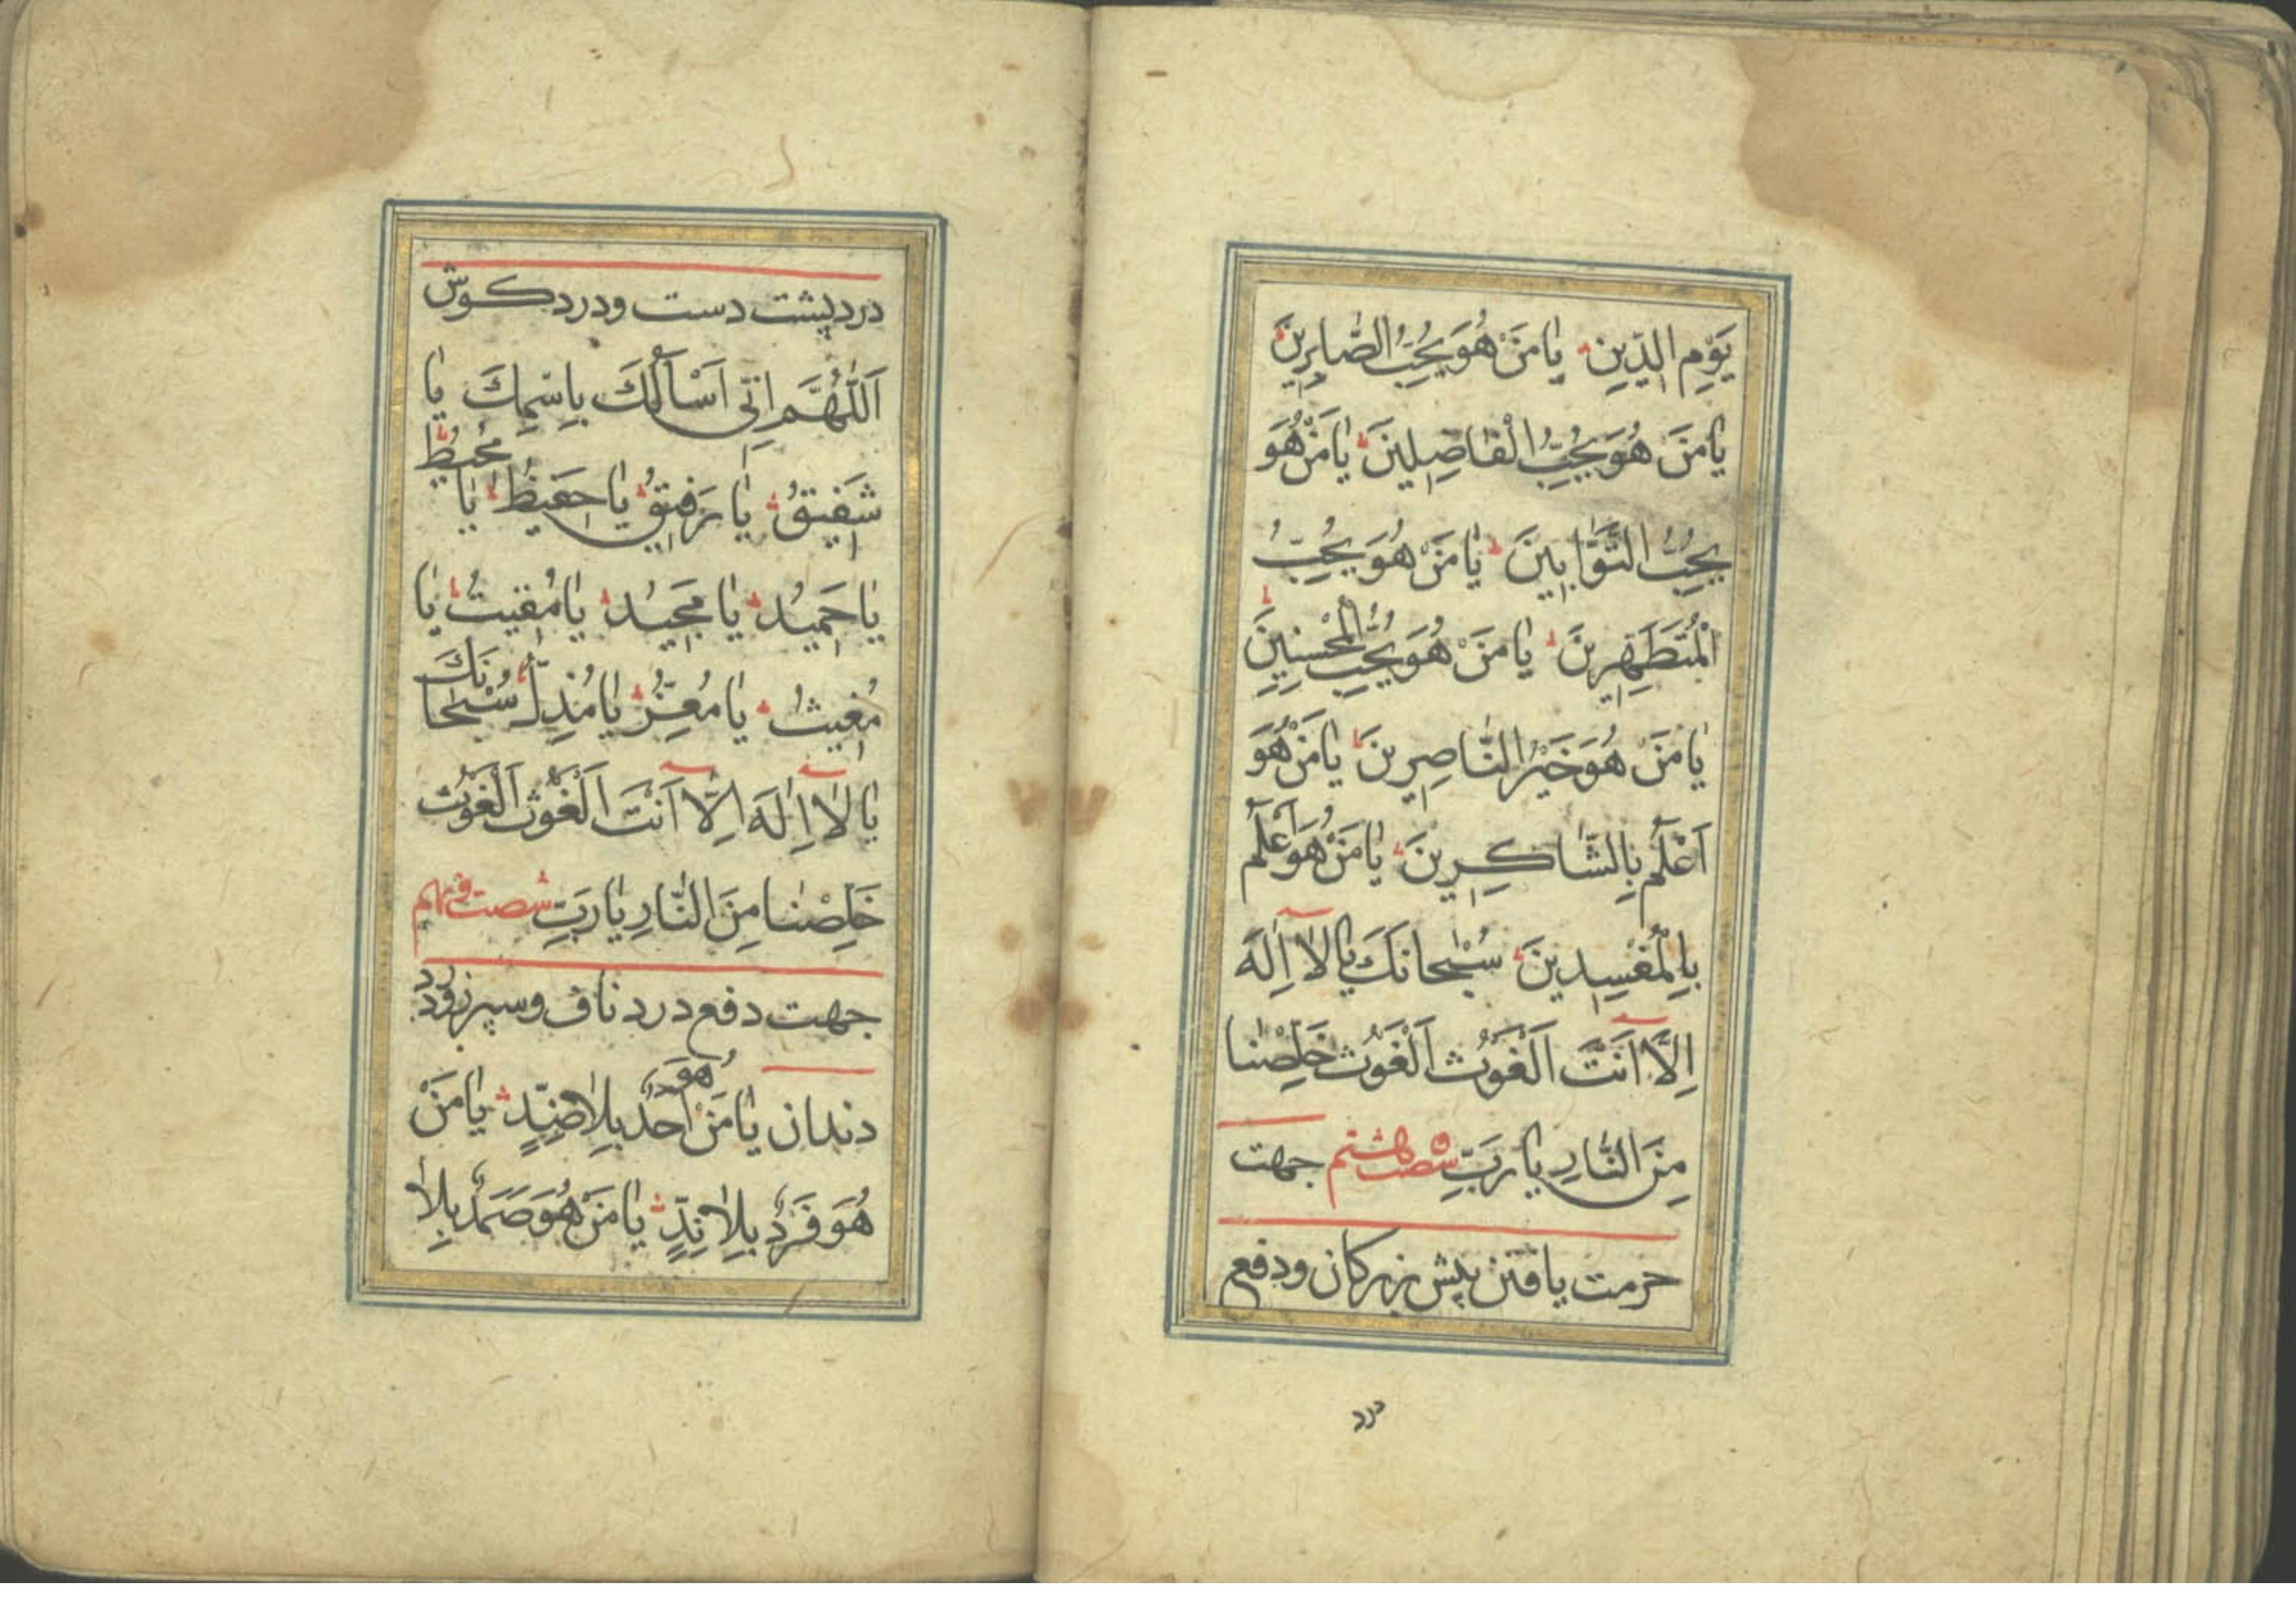 يَوْمِ الدِّينِ يا مَنْ هُوَ يُحِبُّ الصّابِرِينَ
يا مَنْ هُوَ يُحِبُّ الْفاصِلِينَ يا مَنْ هُوَ
يُحِبُّ التَّوّابِينَ يا مَنْ هُوَ يُحِبُّ
الْمُتَطَهِّرِينَ يا مَنْ هُوَ يُحِبُّ الْمُحْسِنِينَ
يا مَنْ هُوَ خَيْرُ النّاصِرِينَ يا مَنْ هُوَ
اَعْلَمُ بِالشّاكِرِينَ يا مَنْ هُوَ اَعْلَمُ
بِالْمُفْسِدِينَ سُبْحانَكَ يا لا اِلهَ
اِلّا اَنْتَ اَلْغَوْثَ اَلْغَوْثَ خَلِّصْنا
مِنَ النّارِ يا رَبِّ شصت و هشتم جهت
حرمت یافتن پیش بزرکان ودفع
درد
درد پشت دست ودرد کوش
اَللّهُمَّ اِنّى اَسْاَلُكَ بِاسْمِكَ يا
شَفيقُ يا رَفيقُ يا حَفيظُ يا مُحيطُ
يا حَميدُ يا مَجيدُ يا مُقيتُ يا
مُغيثُ يا مُعِزُّ يا مُذِلُّ سُبْحانَكَ
يا لا اِلهَ اِلّا اَنْتَ اَلْغَوْثَ اَلْغَوْثَ
خَلِّصْنا مِنَ النّارِ يا رَبِّ شصت و نهم
جهت دفع درد ناف وسپرز ودرد
دندان يا مَنْ هُوَ اَحَدٌ بِلا ضِدٍّ يا مَنْ
هُوَ فَرْدٌ بِلا نِدٍّ يا مَنْ هُوَ صَمَدٌ بِلا